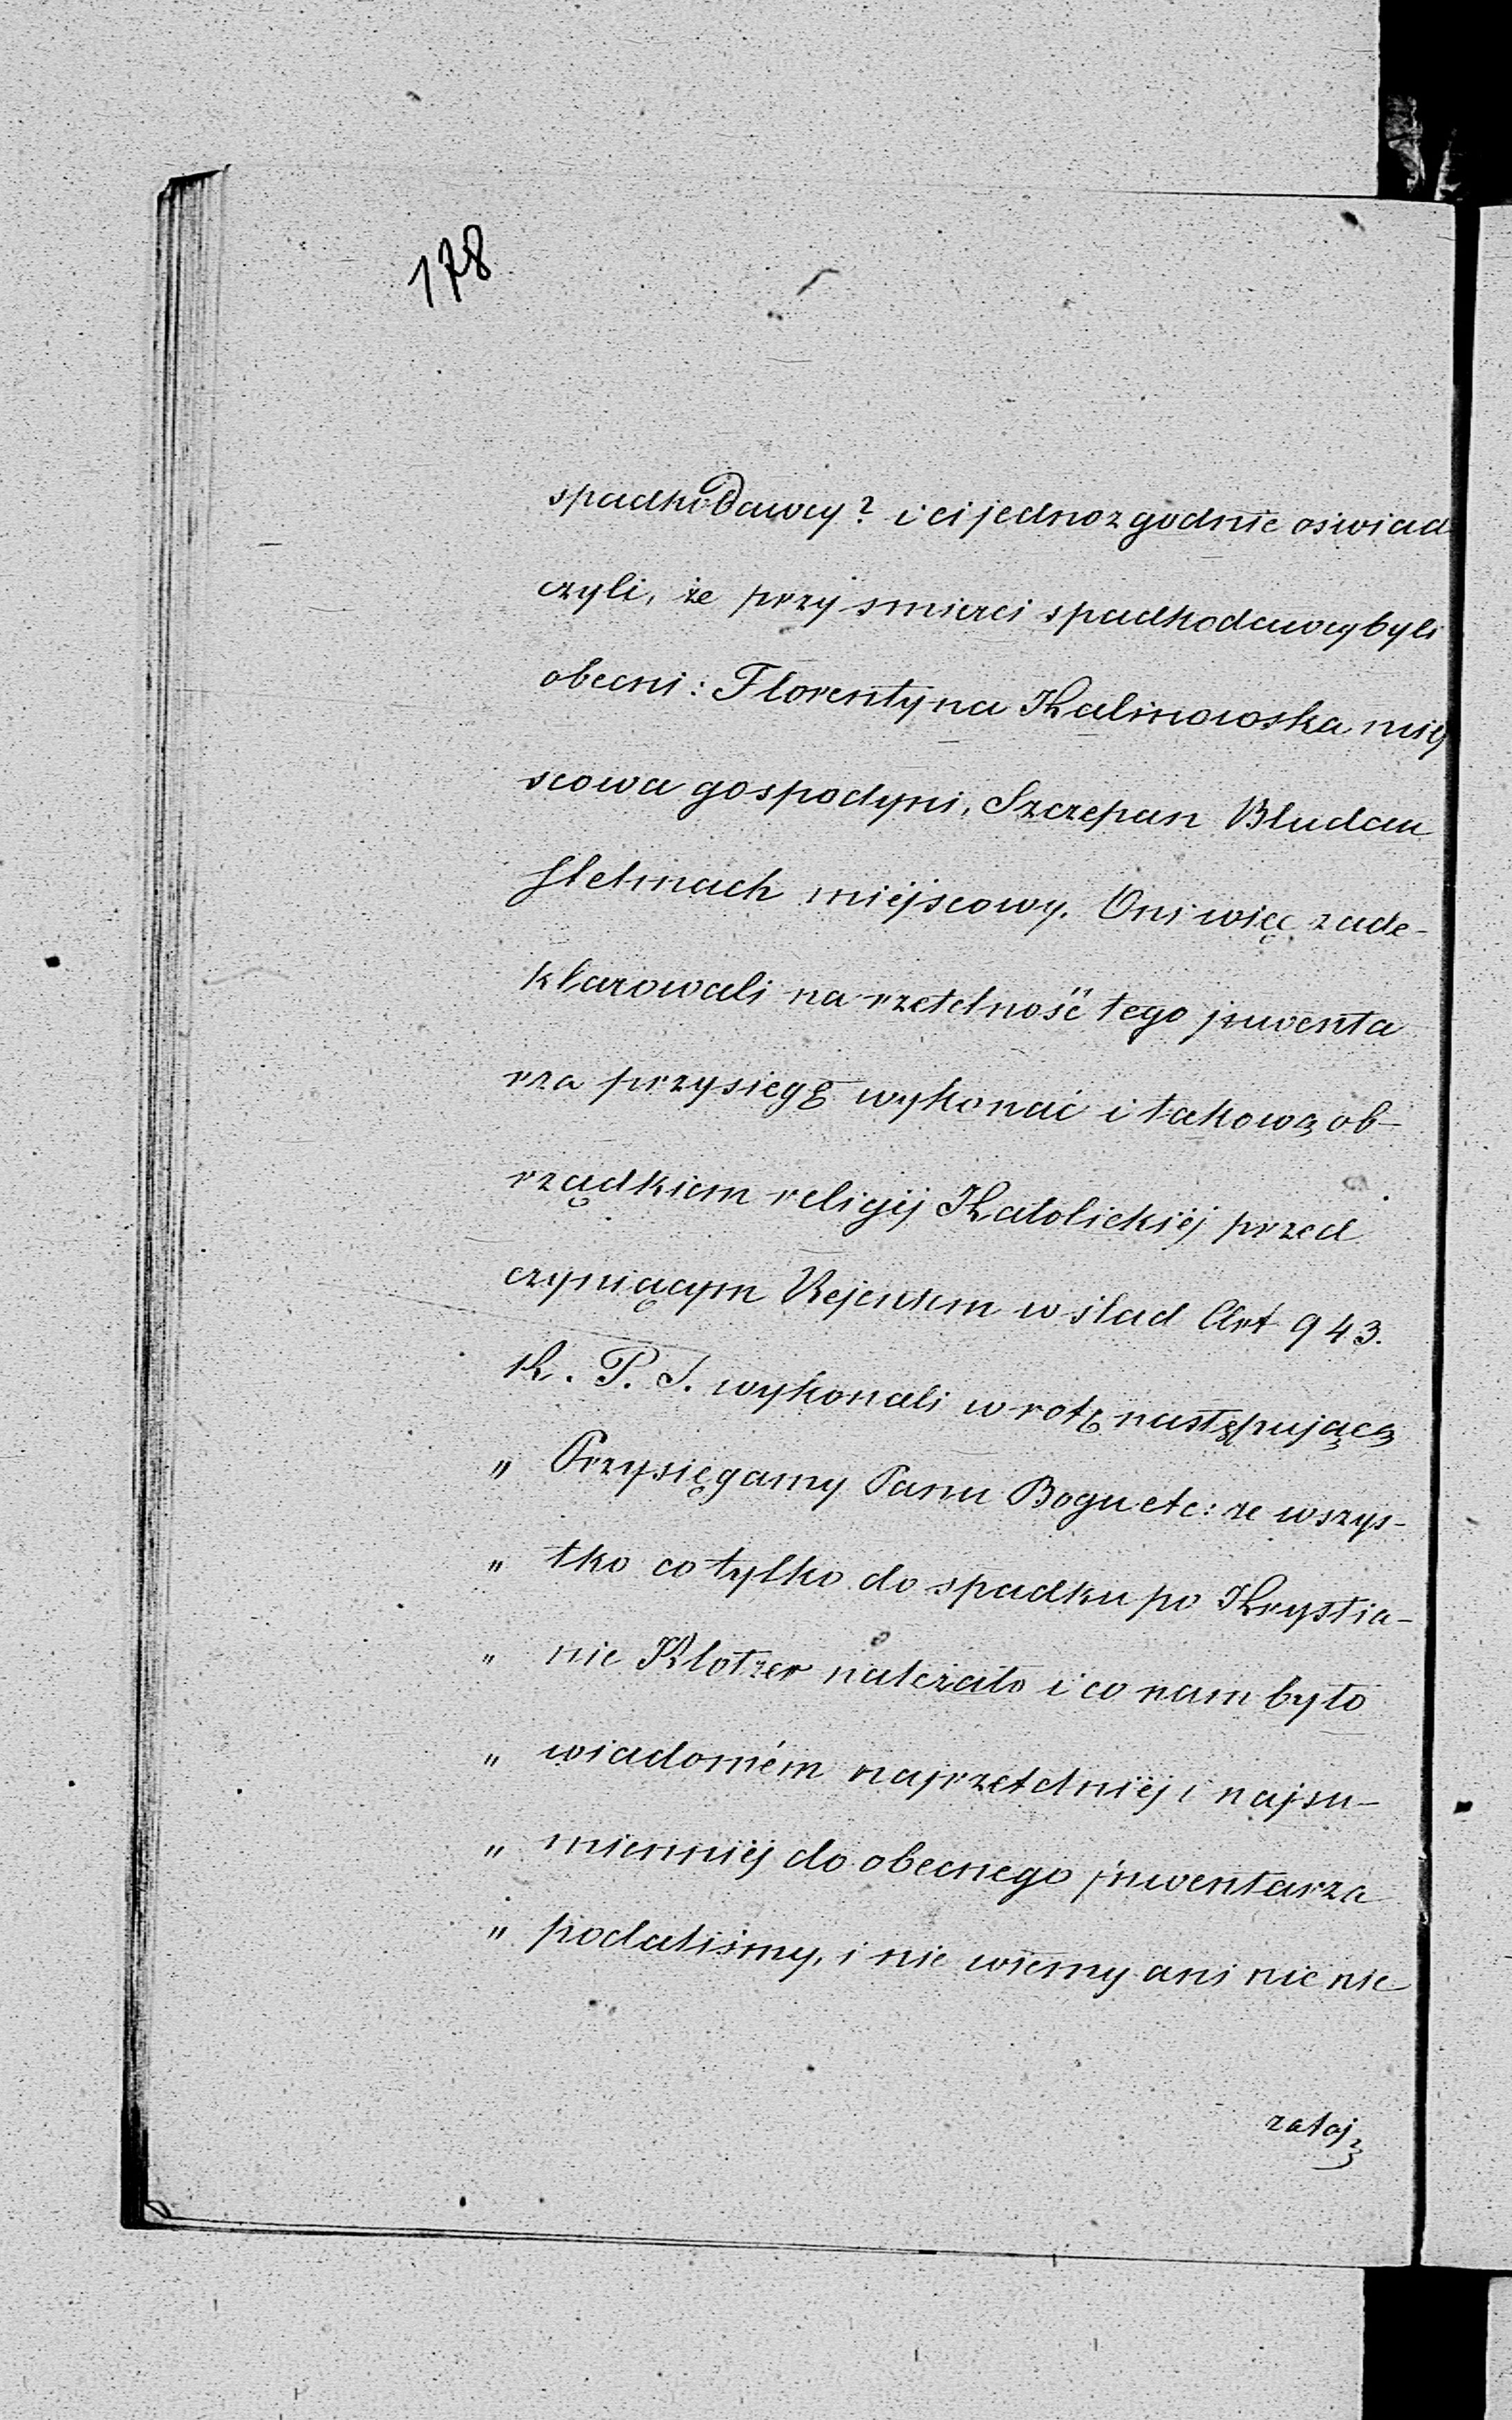 178
spadkodawcy? i ci jednozgodnie oswiad
czyli, że przy smierci spadkodawcy byli
obecni: Florentyna Kalinowska miej
scowa gospodyni, Szczepan Bludau
stelmach miéjscowy. Oni więc zade-
klarowali na rzetelność tego jnwenta
rza przysiegę wykonać i takową ob-
rządkiem religij Katolickiéj przed
czyniącym Rejentem w ślad Art 943.
K. P. S. wykonali w rotę następującą
„ Przysięgamy Panu Bogu etc: że wszys-
„ tko co tylko do spadku po Krystia-
„ nie Klotzer należało i co nam było
„ wiadomém najrzetelniéj i najsu-
„ mienniéj do obecnego jnwentarza
„ podaliśmy, i nie wiemy ani nic nie
zataj